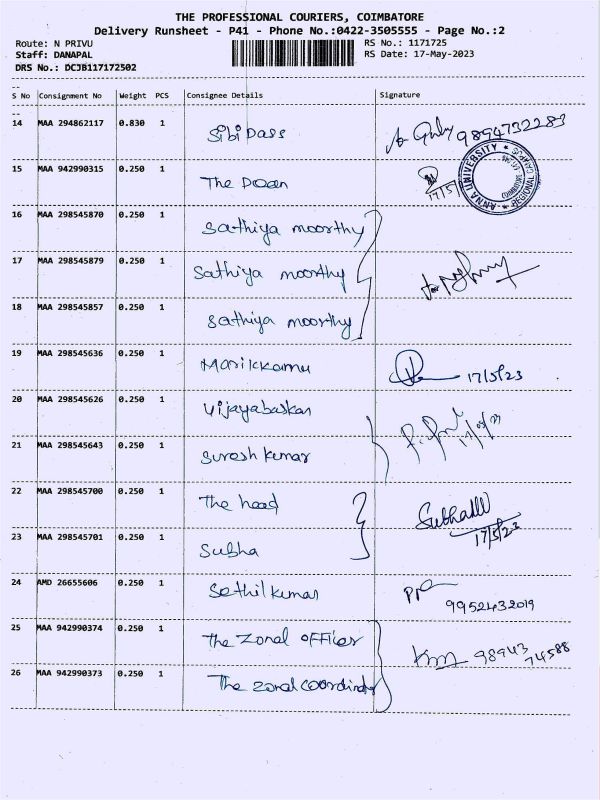 THE PROFESSIONAL COURIERS, COIMBATORE
Delivery Runsheet - P41 - Phone No.:0422-3505555 - Page No.:2
Route: N PRIVU RS No.: 1171725
Staff: DANAPAL RS Date: 17-May-2023
DRS No.: DCJB117172502
S No Consignment No Weight PCS Consignee Details Signature
14 MAA 294862117 0.830 1 Sibi Dass 9894732283
15 MAA 942990315 0.250 1 The Dean 17/5
ANNA UNIVERSITY * REGIONAL CAMPUS *
COIMBATORE
16 MAA 298545870 0.250 1 Sathiya moorthy
17 MAA 298545879 0.250 1 Sathiya moorthy
18 MAA 298545857 0.250 1 Sathiya moorthy
19 MAA 298545636 0.250 1 Marikkamu 17/5/23
20 MAA 298545626 0.250 1 Vijayabaskar
21 MAA 298545643 0.250 1 Suresh kumar 17/05/23
22 MAA 298545700 0.250 1 The head
17/5/23
23 MAA 298545701 0.250 1 Subha
24 AMD 26655606 0.250 1 Sethilkumar
9952432019
25 MAA 942990374 0.250 1 The Zonal officer
98943 74588
26 MAA 942990373 0.250 1 The zonal coordinator